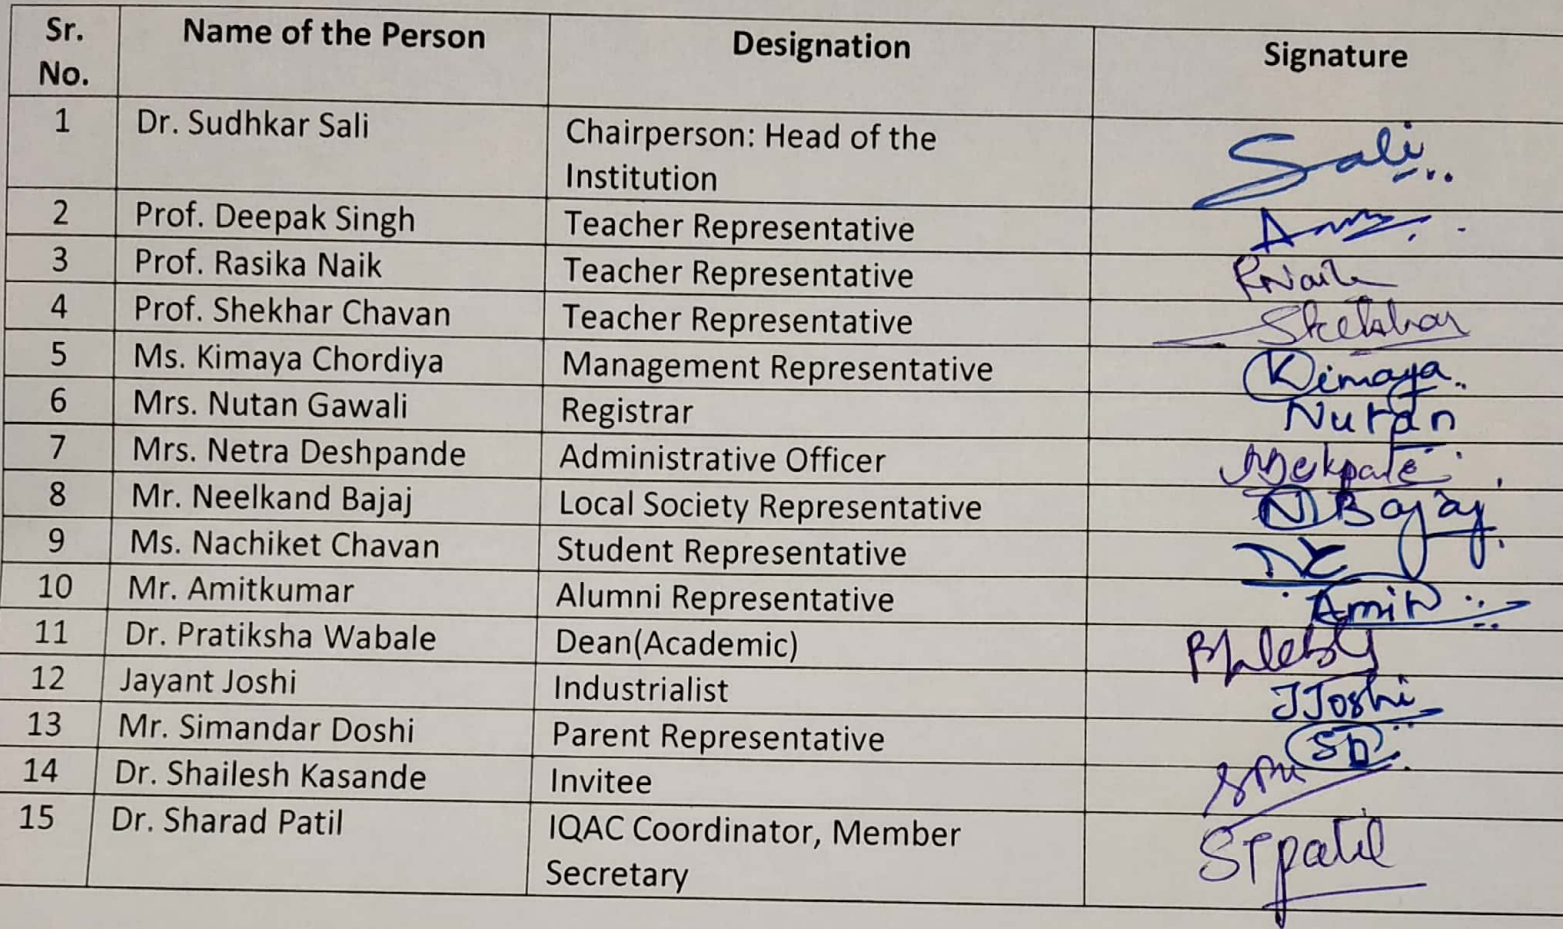 Sr. No. Name of the Person Designation Signature
1 Dr. Sudhkar Sali Chairperson: Head of the Institution Sali
2 Prof. Deepak Singh Teacher Representative
3 Prof. Rasika Naik Teacher Representative RNaik
4 Prof. Shekhar Chavan Teacher Representative Shekhar
5 Ms. Kimaya Chordiya Management Representative Kimaya
6 Mrs. Nutan Gawali Registrar Nutan
7 Mrs. Netra Deshpande Administrative Officer
8 Mr. Neelkand Bajaj Local Society Representative NBajaj
9 Ms. Nachiket Chavan Student Representative NC
10 Mr. Amitkumar Alumni Representative Amit
11 Dr. Pratiksha Wabale Dean(Academic)
12 Jayant Joshi Industrialist JJoshi
13 Mr. Simandar Doshi Parent Representative SD
14 Dr. Shailesh Kasande Invitee
15 Dr. Sharad Patil IQAC Coordinator, Member Secretary STpatil